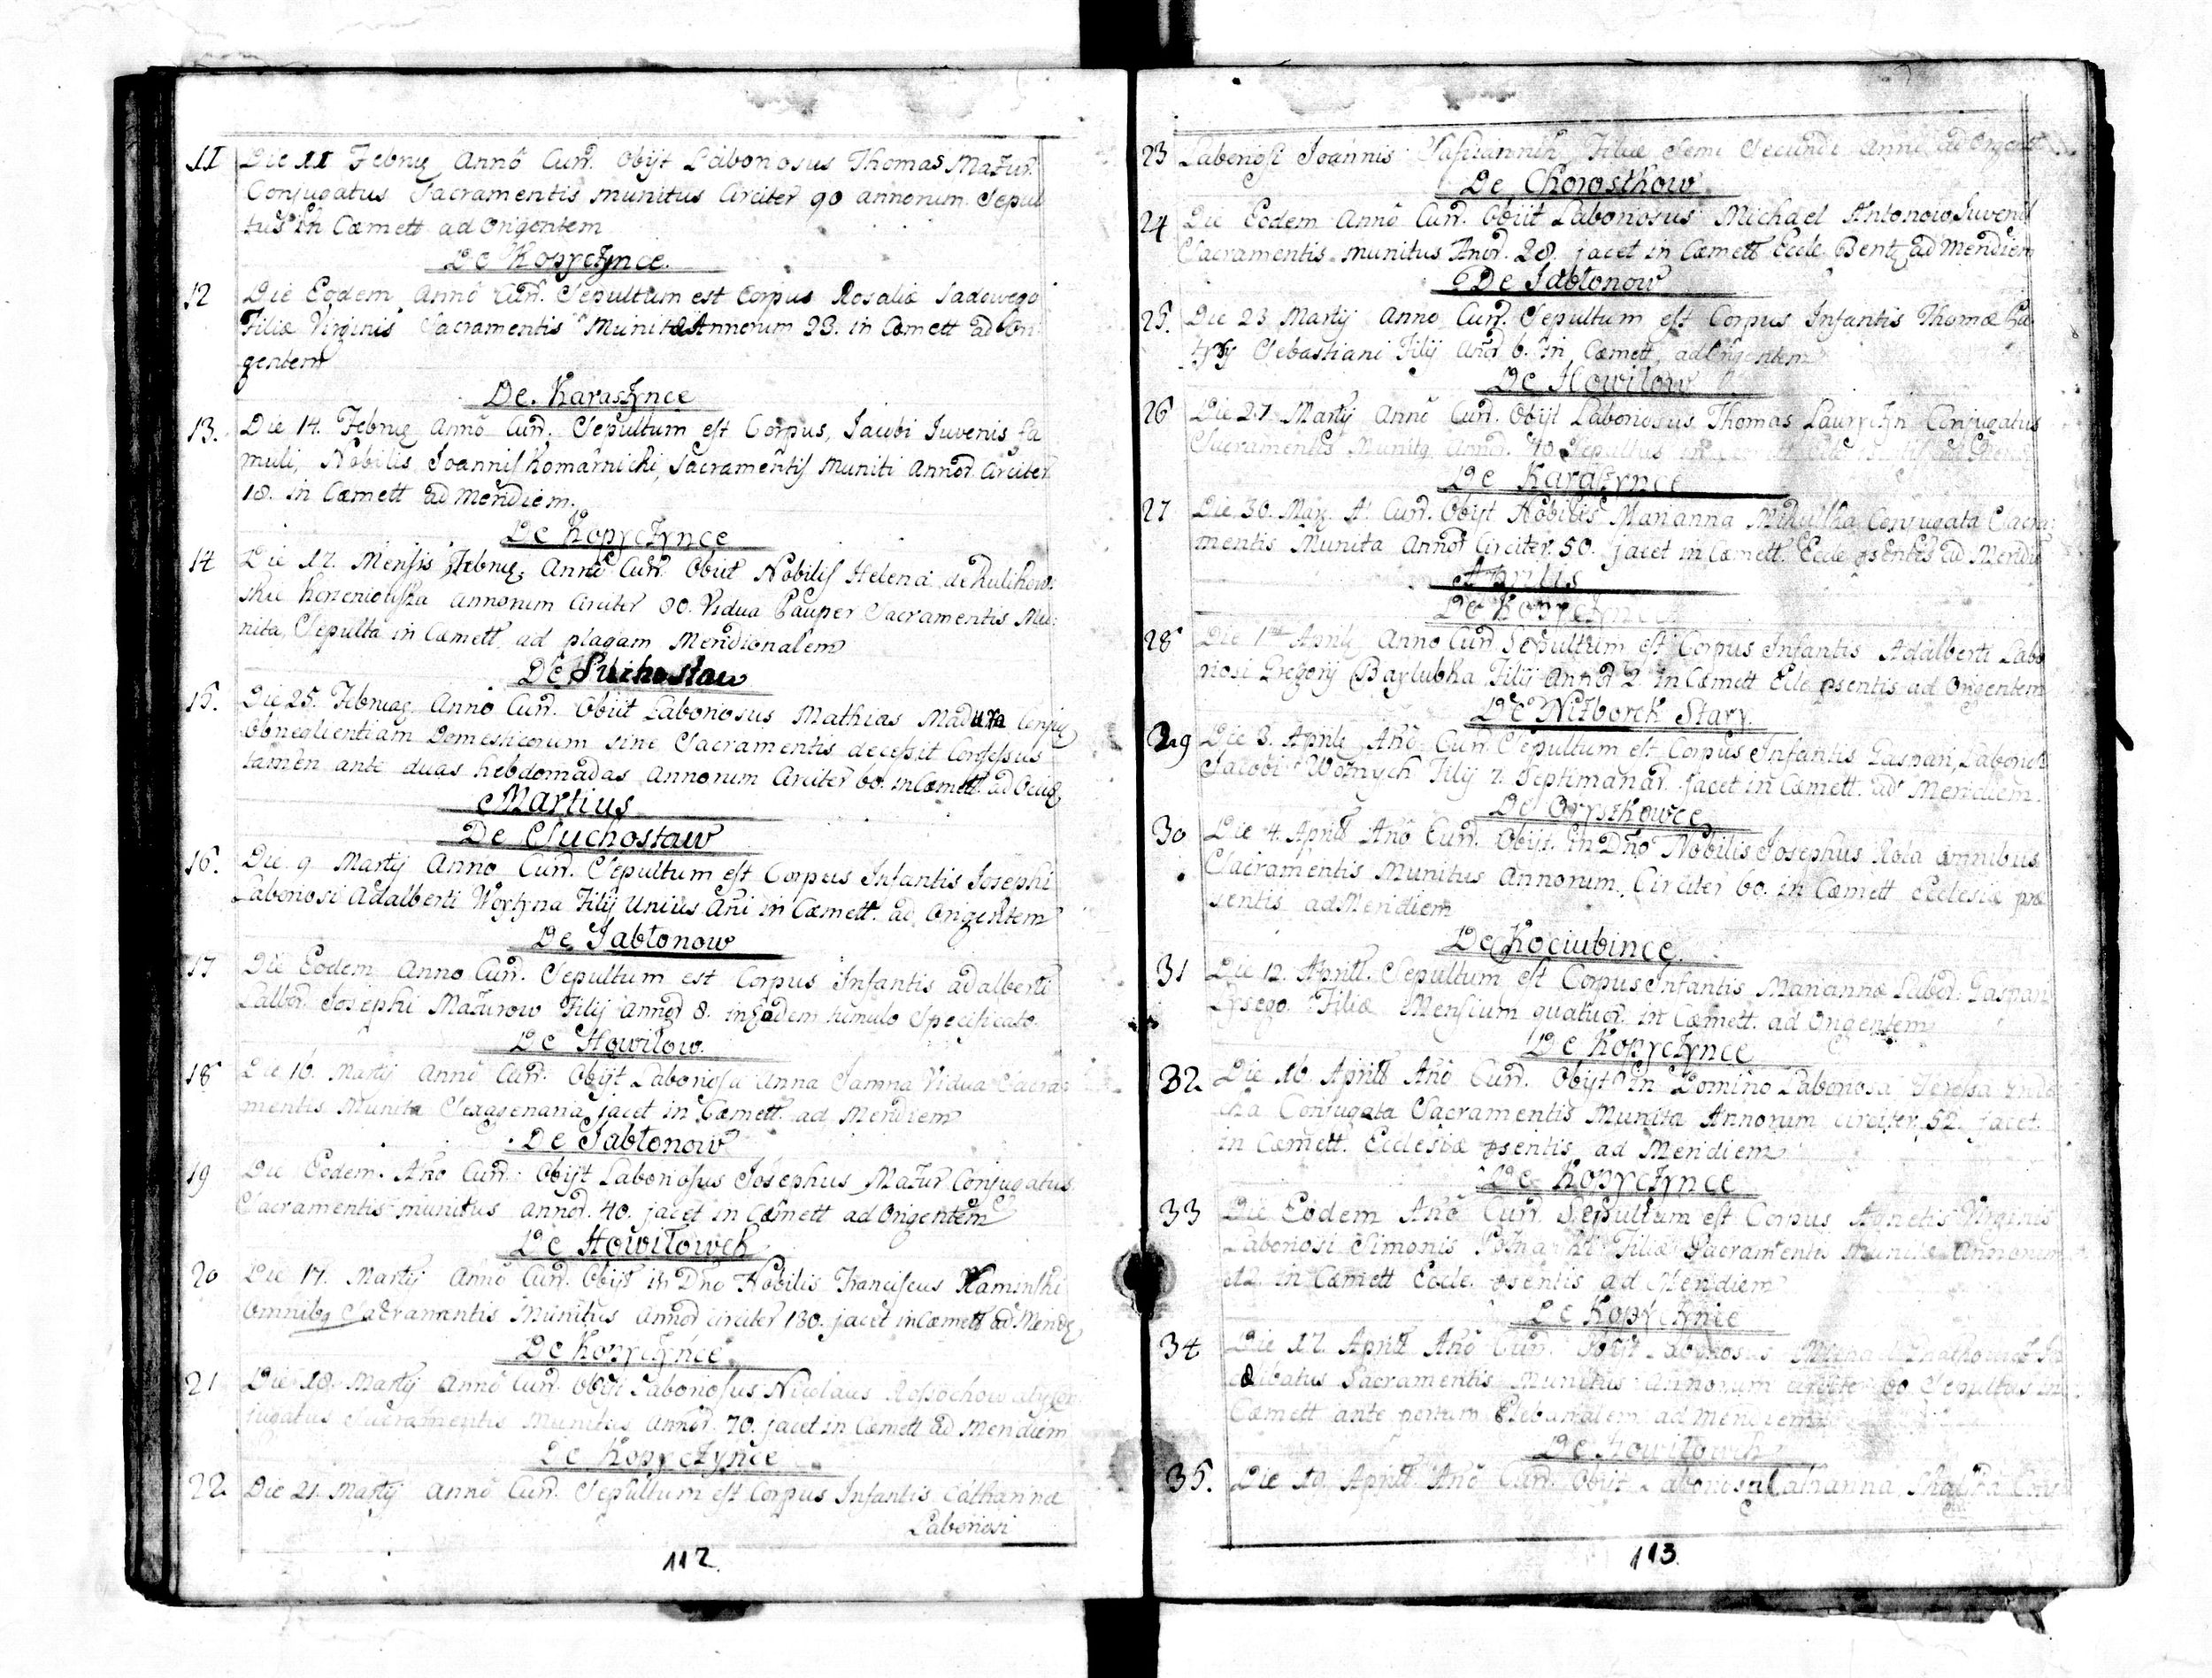 11 Die 11 Febrűe Annô Curr. Obijt Laboriosus Thomas Mazur.
Conjugatus Sacramentis munitus Circiter 90 annorum. Sepul
tus in Cœmett ad Origentem
De Kopyczynce.
12 Die Eodem Annô Curr. Sepultum est Corpus Rosaliæ Sadowego
Filiæ Virginis Sacramentis Munitæ Annorum 23. in Cœmett ad Ori
gentem
De. Karaszynce
13. Die 14. Febrűe Annô Curr. Sepultum est Corpus, Jacobi Juvenis fa
muli, Nobilis Joannis Komarnicki, Sacramentis Muniti Annor. Circiter
18. in Cœmett ad Meridiem.
De Kopyczynce
14 Die 17. Mensis Febrűe. Annô Curr. Obiit Nobilis Helena de
annorum Circiter 80. Vidua Pauper Sacramentis Mu:
nita, Sepulta in Cœmett. ad plagam Meridionalem
De Suchostaw
15. Die 25. Annô Curr. Obiit Laboriosus Mathias Madura
Obneglientiam Domesticorum sine Sacramentis decessit Confessus
tamen ante duas hebdomadas Annorum Circiter 60. in Cœmett. ad
Martius
De Suchostaw
16. Die. 9 Martij Anno Curr. Sepultum est Corpus Infantis Josephi
Laboriosi Adalberti Woytyna Filij Unius Ani in Cœmett. ad Origentem
De Jabtonow
17 Die Eodem Anno Curr. Sepultum est Corpus Infantis Adalberti
Josephi Mazurow Filij Annor 8. in Eodem tumulo Specificato.
De Howitow.
18 Die 16. Martij Annô Curr. Obijt Laboriosa Anna Samna Vidua Sacra:
mentis Munita Sexagenaria jacet in Cœmett. ad Meridiem
De Jabtonow
19 Die Eodem. Anô Curr: Obijt Laboriosus Josephus Mazur Conjugatus
Sacramentis munitus annor. 40. jacet in Cœmett ad Origentem
De Howitowek
20 Die 17. Martij Annô Curr. Obijt in Dnô Nobilis Franciscus Kaminski
Omnibq Sacramentis Munitus Annor circiter 130. jacet in Cœmett ad
De Kopyczynce
21 Die 18. Martij Annô Curr. Obijt Laboriosus Nicolaus Con
jugatus Sacramentis Munitus Annor. 70. jacet in Cœmett ad Meridiem
De Kopyczynce
22. Die 21. Martij Annô Curr. Sepultum est Corpus Infantis Catharina
Laboriosi
112.
23 Laboriosi Joannis Filiæ Semi Secundi Anni ad Origent
De Chorostkow
24 Die Eodem Annô Curr. Obiit Laboriosus Michael Antonow Juvenis
Sacramentis munitus Annor. 28. jacet in Cœmett Eccle ad Meridiem
De Jabtonow
25. Die 23 Martij Anno Curr. Sepultum est Corpus Infantis Thomæ
Sebastiani Filij Anor 6. in Cœmett, ad Origentem
De Howitow
26 Die 27 Martij Annô Curr. Obijt Laboriosus Thomas Conjugatus
Sacramentis Munitq Annor. 40. Sepultus in
De Karaszynce
27 Die. 30. Mar. A. Curr. Obijt Nobilis Marianna Conjugata Sacra:
mentis Munita Annor Circiter. 50. jacet in Cœmett. Eccle psentis ad
Aprilis
De
28 Die 1ma Anno Curr Sepultum est Corpus Infantis Adalberti Labo
riosi Gregorij Filij Annor 2. in Cœmett Ecle psentis ad Origentem
De Nizborek Stary.
29 Die 3. Anô Curr. Sepultum est Corpus Infantis Gaspari,
Jacobi Woznych Filij 7. Septimanar. jacet in Cœmett. ad Meridiem.
De Oryszkowce
30 Die 4. April Anô Curr. Obijt. in Dño Nobilis Josephus Rola Omnibus
Sacramentis Munitus Annorum. Circiter 60. in Cœmett Ecclesiæ præ
sentis ad Meridiem
De Kociubince.
31 Die 12. April. Sepultum est Corpus Infantis Mariannæ Labor: Gaspari
Lysego. Filiæ Mensium quatuor. in Cœmett. ad Origentem
De Kopyczynce
32 Die 16 April Anô Curr. Obijt in Domino Laboriosa
Conjugata Sacramentis Munita Annorum circiter 52. jacet
in Cœmett. Ecclesiæ psentis ad Meridiem
De Kopyczynce
33 Die Eodem Anô Curr. Sepultum est Corpus Agnetis Virginis
Laboriosi Simonis Filiæ Sacramentis Munitæ Annorum
12. in Cœmett Eccle. psentis ad Meridiem
De Kopyczynce
34 Die 17. April Anô Curr. Obijt
Sacramentis Munitus Annorum 60. Sepultus in
Cœmett ante portam Plebanalem ad Meridiem
De Howitowek
35. Die 19. April Anô Curr. Obiit Laboriosa Catharina
113.